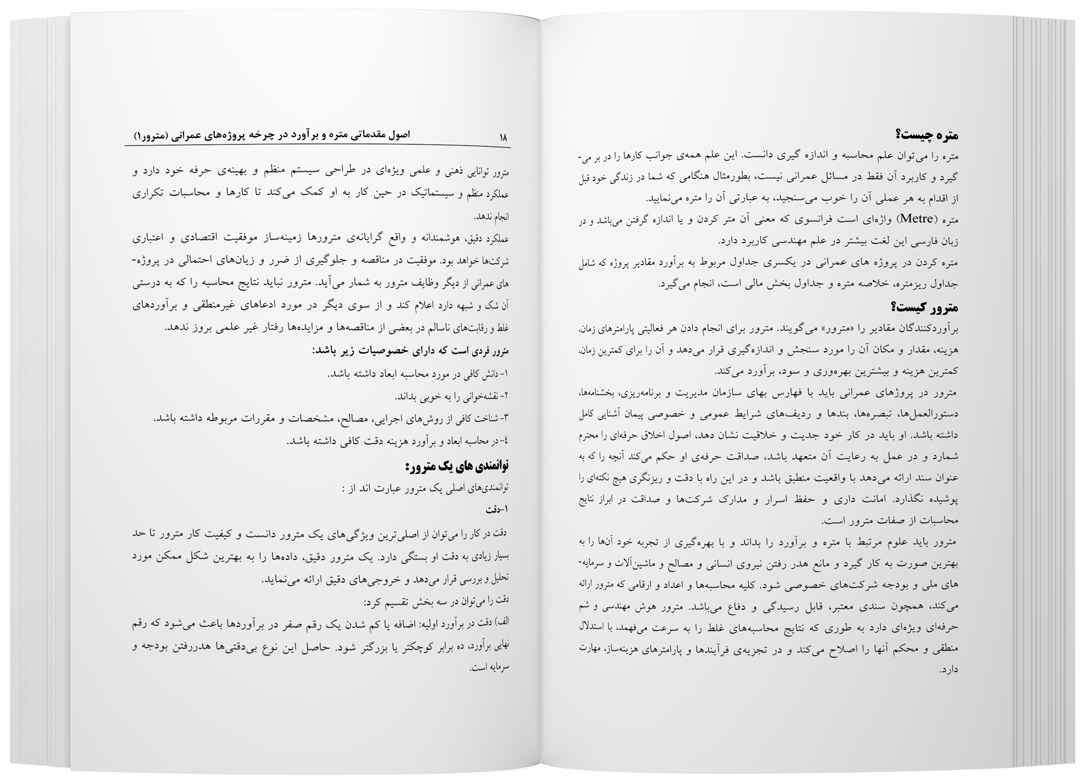 متره چیست؟
متره را می‌توان علم محاسبه و اندازه گیری دانست. این علم همه‌ی جوانب کارها را در بر می-
گیرد و کاربرد آن فقط در مسائل عمرانی نیست، بطورمثال هنگامی که شما در زندگی خود قبل
از اقدام به هر عملی آن را خوب می‌سنجید، به عبارتی آن را متره می‌نمایید.
متره (Metre) واژه‌ای است فرانسوی که معنی آن متر کردن و یا اندازه گرفتن می‌باشد و در
زبان فارسی این لغت بیشتر در علم مهندسی کاربرد دارد.
متره کردن در پروژه های عمرانی در یکسری جداول مربوط به برآورد مقادیر پروژه که شامل
جداول ریزمتره، خلاصه متره و جداول بخش مالی است، انجام می‌گیرد.
مترور کیست؟
برآوردکنندگان مقادیر را «مترور» می‌گویند. مترور برای انجام دادن هر فعالیتی پارامترهای زمان،
هزینه، مقدار و مکان آن را مورد سنجش و اندازه‌گیری قرار می‌دهد و آن را برای کمترین زمان،
کمترین هزینه و بیشترین بهره‌وری و سود، برآورد می‌کند.
مترور در پروژهای عمرانی باید با فهارس بهای سازمان مدیریت و برنامه‌ریزی، بخشنامه‌ها،
دستورالعمل‌ها، تبصره‌ها، بندها و ردیف‌های شرایط عمومی و خصوصی پیمان آشنایی کامل
داشته باشد. او باید در کار خود جدیت و خلاقیت نشان دهد، اصول اخلاق حرفه‌ای را محترم
شمارد و در عمل به رعایت آن متعهد باشد، صداقت حرفه‌ی او حکم می‌کند آنچه را که به
عنوان سند ارائه می‌دهد با واقعیت منطبق باشد و در این راه با دقت و ریزنگری هیچ نکته‌ای را
پوشیده نگذارد. امانت داری و حفظ اسرار و مدارک شرکت‌ها و صداقت در ابراز نتایج
محاسبات از صفات مترور است.
مترور باید علوم مرتبط با متره و برآورد را بداند و با بهره‌گیری از تجربه خود آن‌ها را به
بهترین صورت به کار گیرد و مانع هدر رفتن نیروی انسانی و مصالح و ماشین‌آلات و سرمایه-
های ملی و بودجه شرکت‌های خصوصی شود. کلیه محاسبه‌ها و اعداد و ارقامی که مترور ارائه
می‌کند، همچون سندی معتبر، قابل رسیدگی و دفاع می‌باشد. مترور هوش مهندسی و شم
حرفه‌ای ویژه‌ای دارد به طوری که نتایج محاسبه‌های غلط را به سرعت می‌فهمد، با استدلال
منطقی و محکم آنها را اصلاح می‌کند و در تجزیه‌ی فرآیندها و پارامترهای هزینه‌ساز، مهارت
دارد.
۱۸ اصول مقدماتی متره و برآورد در چرخه پروژه‌های عمرانی (مترور۱)
مترور توانایی ذهنی و علمی ویژه‌ای در طراحی سیستم منظم و بهینه‌ی حرفه خود دارد و
عملکرد منظم و سیستماتیک در حین کار به او کمک می‌کند تا کارها و محاسبات تکراری
انجام ندهد.
عملکرد دقیق، هوشمندانه و واقع گرایانه‌ی مترورها زمینه‌ساز موفقیت اقتصادی و اعتباری
شرکت‌ها خواهد بود. موفقیت در مناقصه و جلوگیری از ضرر و زیان‌های احتمالی در پروژه-
های عمرانی از دیگر وظایف مترور به شمار می‌آید. مترور نباید نتایج محاسبه را که به درستی
آن شک و شبهه دارد اعلام کند و از سوی دیگر در مورد ادعاهای غیرمنطقی و برآوردهای
غلط و رقابت‌های ناسالم در بعضی از مناقصه‌ها و مزایده‌ها رفتار غیر علمی بروز ندهد.
مترور فردی است که دارای خصوصیات زیر باشد:
۱- دانش کافی در مورد محاسبه ابعاد داشته باشد.
۲- نقشه‌خوانی را به خوبی بداند.
۳- شناخت کافی از روش‌های اجرایی، مصالح، مشخصات و مقررات مربوطه داشته باشد.
۴- در محاسبه ابعاد و برآورد هزینه دقت کافی داشته باشد.
توانمندی های یک مترور:
توانمندی‌های اصلی یک مترور عبارت اند از :
۱-دقت
دقت در کار را می‌توان از اصلی‌ترین ویژگی‌های یک مترور دانست و کیفیت کار مترور تا حد
بسیار زیادی به دقت او بستگی دارد. یک مترور دقیق، داده‌ها را به بهترین شکل ممکن مورد
تحلیل و بررسی قرار می‌دهد و خروجی‌های دقیق ارائه می‌نماید.
دقت را می‌توان در سه بخش تقسیم کرد:
الف) دقت در برآورد اولیه: اضافه یا کم شدن یک رقم صفر در برآوردها باعث می‌شود که رقم
نهایی برآورد، ده برابر کوچکتر یا بزرگتر شود. حاصل این نوع بی‌دقتی‌ها هدررفتن بودجه و
سرمایه است.